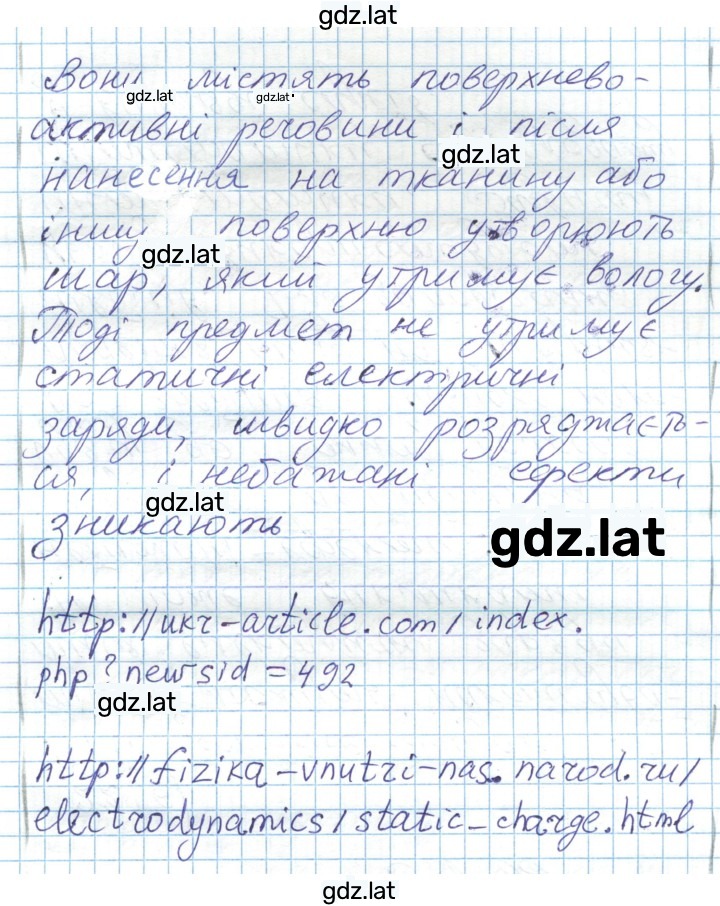 gdz.lat
Вони містять поверхнево-
gdz.lat
gdz.lat
активні речовини і після
gdz.lat
нанесення на тканину або
іншу поверхню утворюють
gdz.lat
шар, який утримує вологу.
Тоді предмет не утримує
статичні електричні
заряди, швидко розряджаєть-
ся, і небажані ефекти
gdz.lat
зникають
gdz.lat
http://ukr-article.com/index.
php?newsid=492
gdz.lat
http://fizika-vnutri-nas.narod.ru/
electrodynamics/static_charge.html
gdz.lat